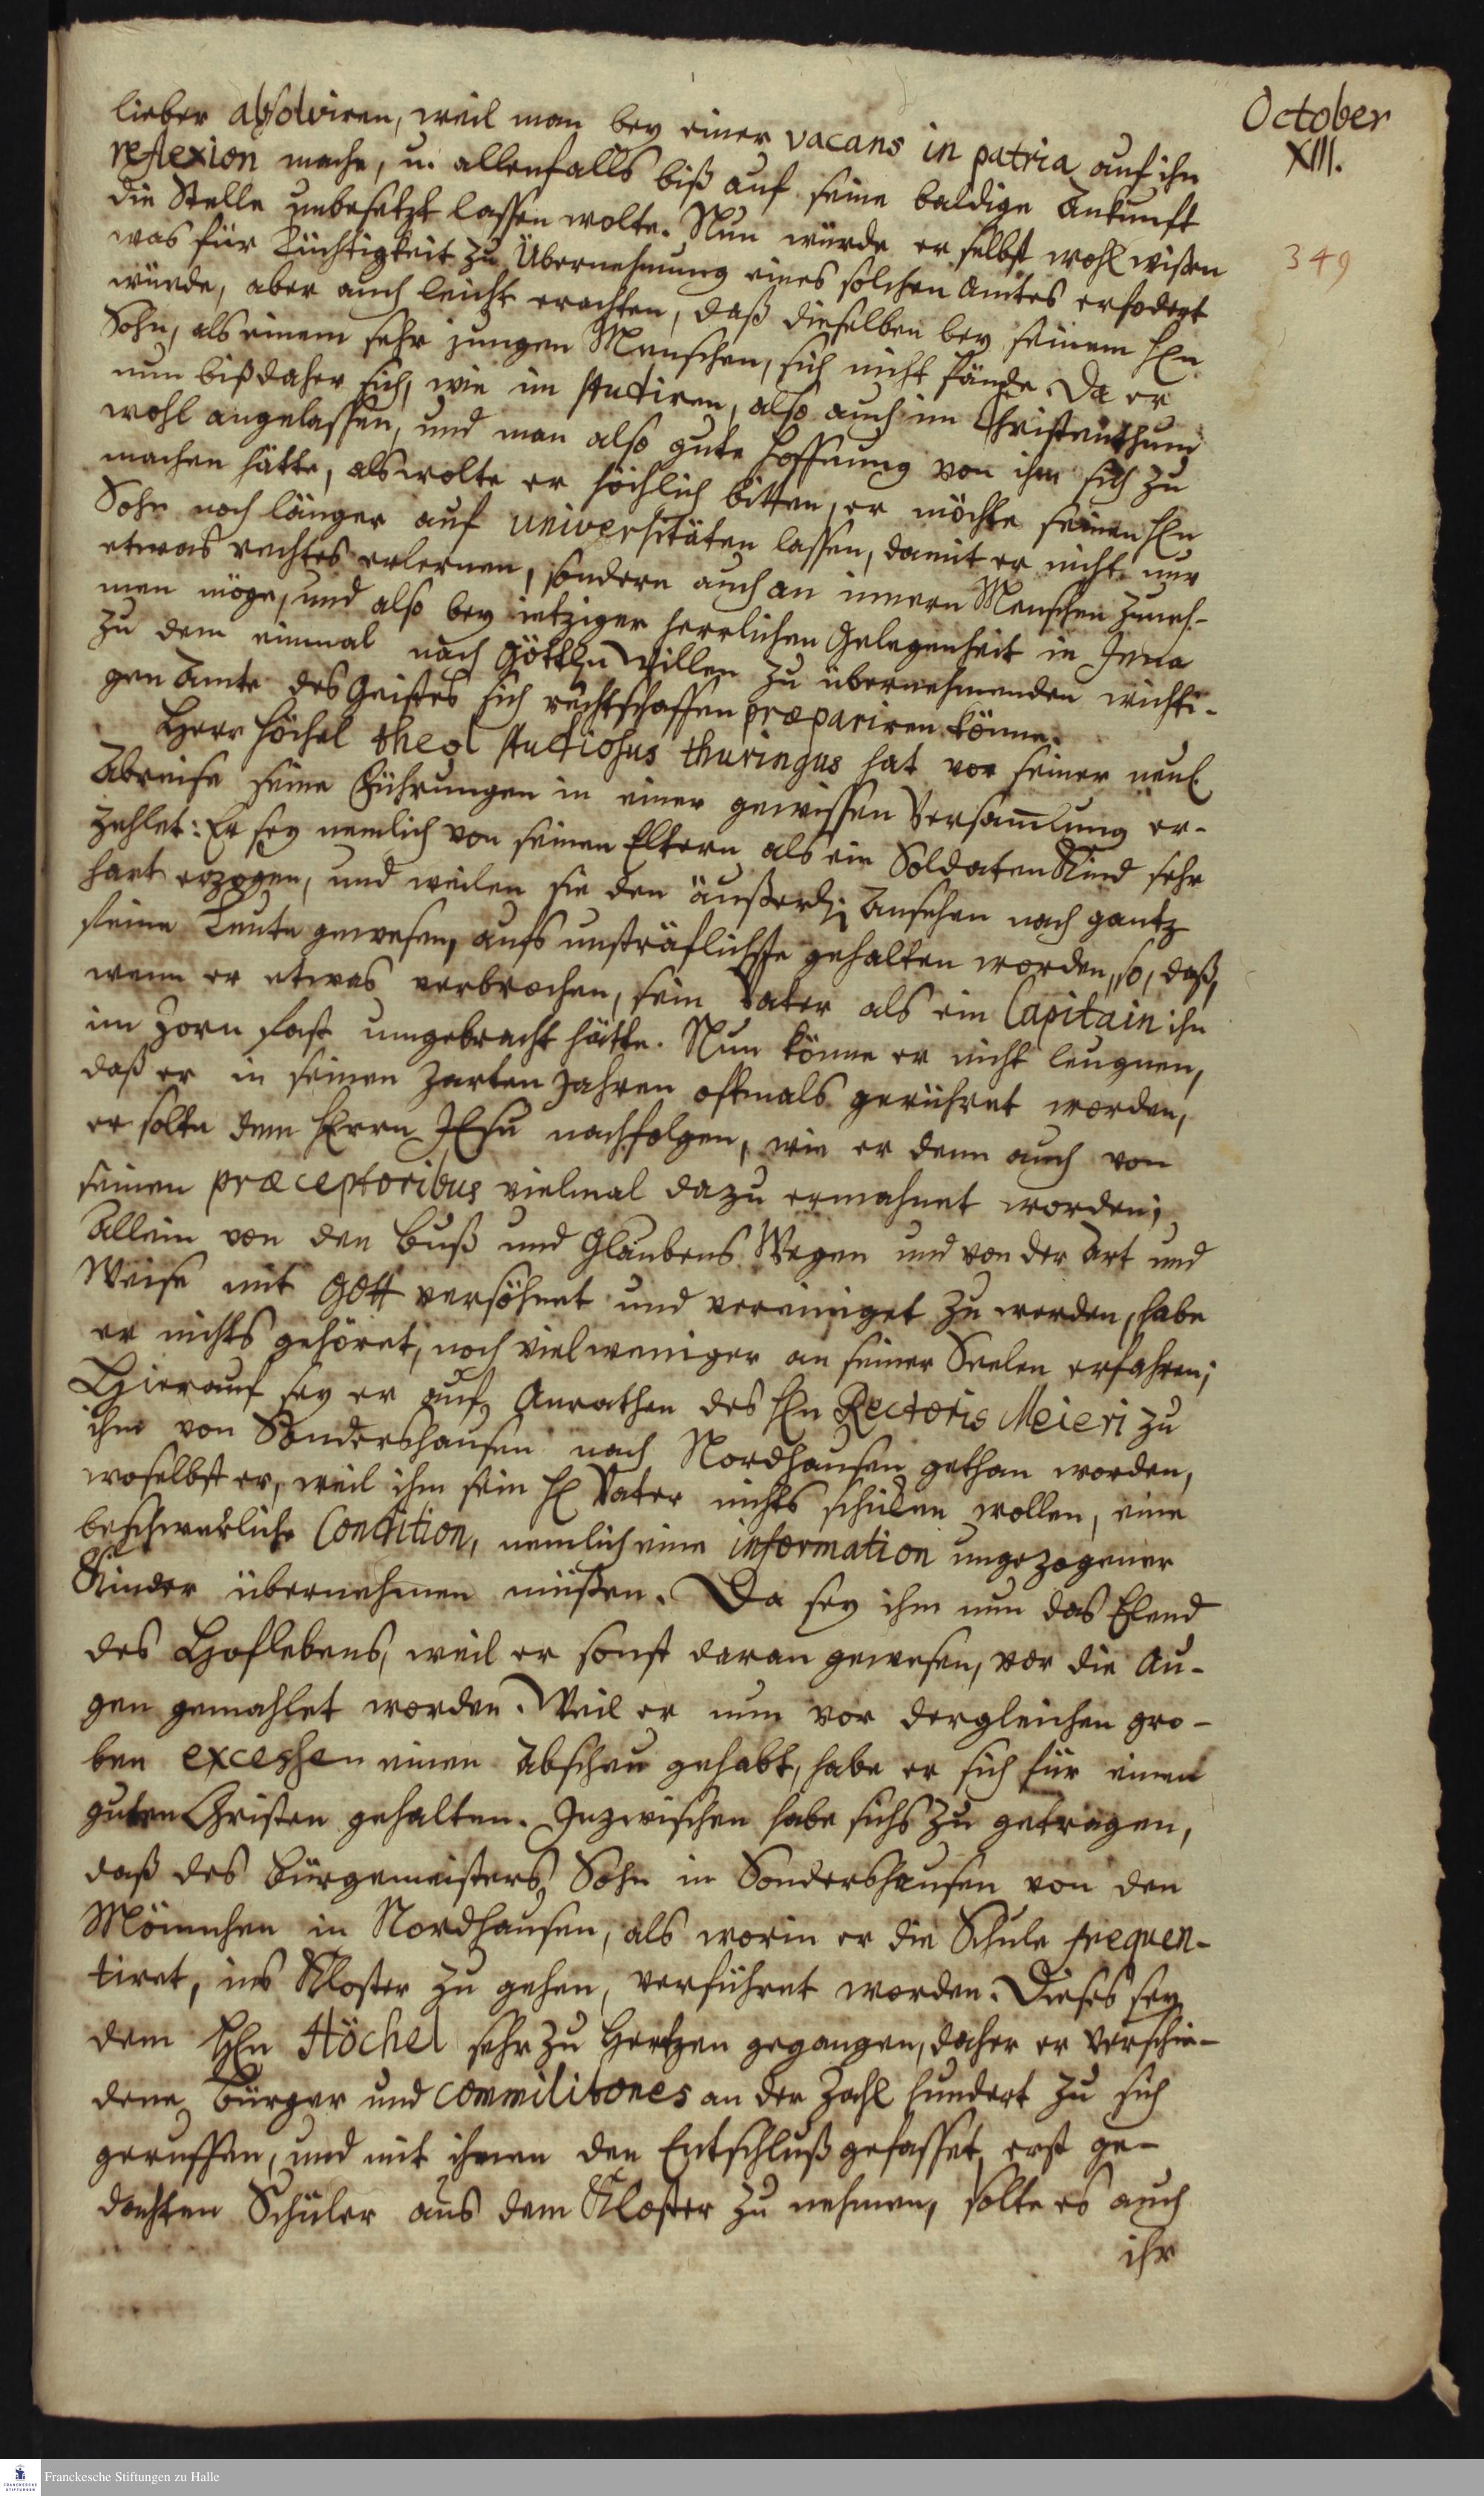 October
XIII.
349
lieber absolviren, weil man bey einer vacans in patria auf ihn
reflexion mache, u. allenfalls biß auf seine baldige Ankunft
die Stelle unbesetzt lassen wolte. Nun würde er selbst wohl wißen
was für Tüchtigkeit zu Übernehmung eines solchen Amtes erfodert
würde, aber auch leicht erachten, daß dieselben bey seinem HEn
Sohn, als einem sehr jungen Menschen, sich nicht fände. Da er
nun bißdaher sich, wie im studiren, also auch im Christenthum
wohl angelassen, und man also gute Hoffnung von ihm sich zu
machen hätte, als wolte er höchlich bitten, er möchte seinen HEn
Sohn noch länger auf universitäten lassen, damit er nicht nur
etwas rechtes erlernen, sondern auch an innern Menschen zuneh-
men möge, und also bey ietziger herrlichen Gelegenheit in Jena
zu dem einmal nach Göttln Willen zu übernehmenden wichti-
gen Amte des Geistes sich rechtschaffen præpariren könne.
Herr Höchel theol studiosus thuringus hat vor seiner neul
Abreise seine Führungen in einer gewissen Versamlung er-
zehlet: Er sey nemlich von seinen Eltern als ein Soldaten Kind sehr
hart erzogen, und weilen sie den äußerl. Ansehen nach gantz
feine Leute gewesen, aufs unsträflichste gehalten worden, so, daß,
wenn er etwas verbrochen, sein Vater als ein Capitain ihn
im Zorn fast umgebracht hätte. Nun könne er nicht leugnen,
daß er in seinen zarten Jahren oftmals gerühret worden,
er solte dem HErrn JEsu nachfolgen, wie er denn auch von
seinen præceptoribus vielmal dazu ermahnet worden;
Allein von den Buß und Glaubens Wegen und von der Art und
Weise mit GOtt versöhnet und vereiniget zu werden, habe
er nichts gehöret, noch vielweniger an seiner Seelen erfahren;
Hierauf sey er auf Anrathen des HEn Rectoris Meieri zu
ihm von Sondershausen nach Nordhausen gethan worden,
woselbst er, weil ihm sein H Vater nichts schicken wollen, eine
beschwerliche Condition, nemlich eine information ungezogener
Kinder übernehmen müßen. Da sey ihm nun das Elend
des Hoflebens, weil er sonst daran gewesen, vor die Au-
gen gemahlet worden. Weil er nun vor dergleichen gro-
ben excessen einen Abscheu gehabt, habe er sich für einen
guten Christen gehalten. Inzwischen habe sichs zu getragen,
daß des Bürgemeisters Sohn in Sondershausen von den
Mönchen in Nordhausen, als worin er die Schule frequen-
tiret, ins Kloster zu gehen, verführet worden. Dieses sey
dem HEn Höchel sehr zu Hertzen gegangen, daher er verschie-
dene Bürger und commilitones an der Zahl hundert zu sich
geruffen, und mit ihnen den Entschluß gefasset, erst ge-
dachten Schüler aus dem Kloster zu nehmen, solte es auch
ihr
Franckesche Stiftungen zu Halle